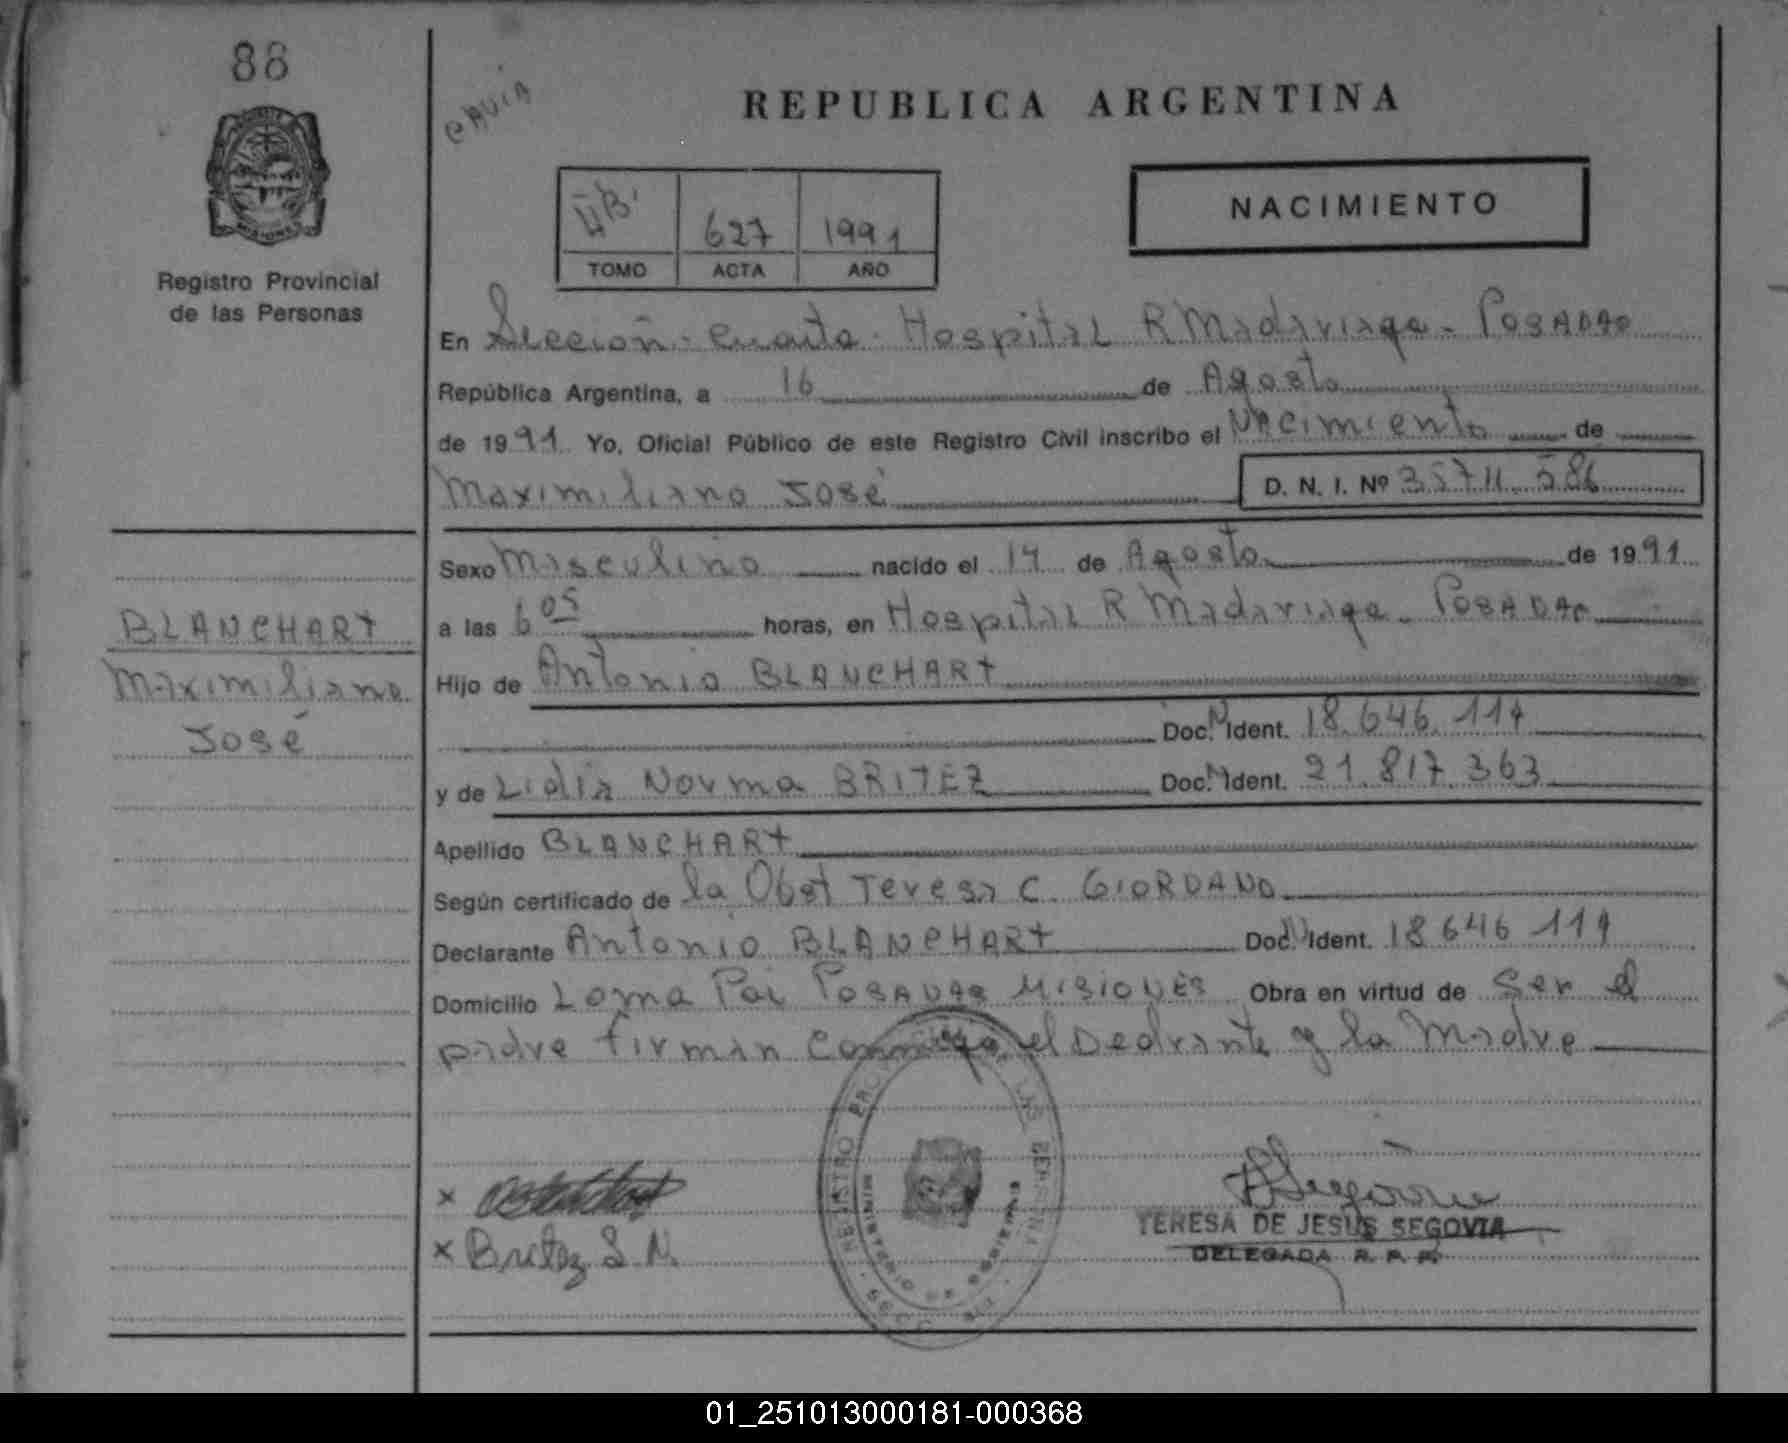 88
CAVIA
REPUBLICA ARGENTINA
Registro Provincial
de las Personas
627 1991
TOMO ACTA AÑO
NACIMIENTO
En Sección Cuarta Hospital R Madariaga - POSADAS
República Argentina, a 16 de Agosto
de 1991 Yo, Oficial Público de este Registro Civil inscribo el Nacimiento de
Maximiliano José D. N. I. Nº 35711.586
Sexo Masculino nacido el 14 de Agosto de 1991
a las 6 05 horas, en Hospital R Madariaga - POSADAS
Hijo de Antonio BLANCHART
Doc. N Ident. 18.646.114
y de Lidia Norma BRITEZ Doc. N Ident. 21.817.363
Apellido BLANCHART
Según certificado de la Obst Teresa C. GIORDANO
Declarante Antonio BLANCHART Doc. N Ident. 18 646 114
Domicilio Loma Poi POSADAS MISIONES Obra en virtud de Ser el
padre firman conmigo el Declrante y la Madre
BLANCHART
Maximiliano
José
REGISTRO PROVINCIAL DE LAS PERSONAS
MINISTERIO DE GOBIERNO
x
x Britez L. N.
TERESA DE JESUS SEGOVIA
DELEGADA R. P. P.
01_251013000181-000368